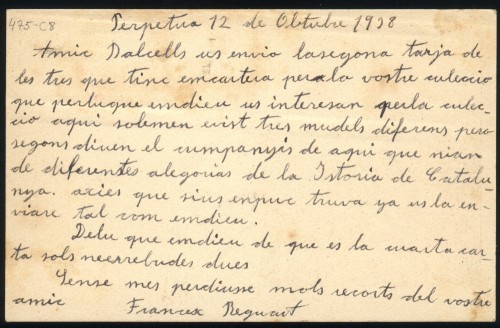 475-C8
Perpetua 12 de Obtubre 1938
Amic Dalcells us envio lasegona tarja de
les tres que tinc emcartera perala vostre culecció
que pertuque emdieu us interesan perla culec-
ció aqui solemen exist tres mudels diferens pero
segons diuen el cumpanyis de aqui que nian
de diferentes alegorias de la Istoria de Catalu-
nya. axies que sius enpuc truva ya us la en-
viare tal com emdieu.
Delu que emdieu de que es la cuarta car-
ta sols neerrebudes dues
Sense mes perdiuse mols recorts del vostre
amic Francex Reguart